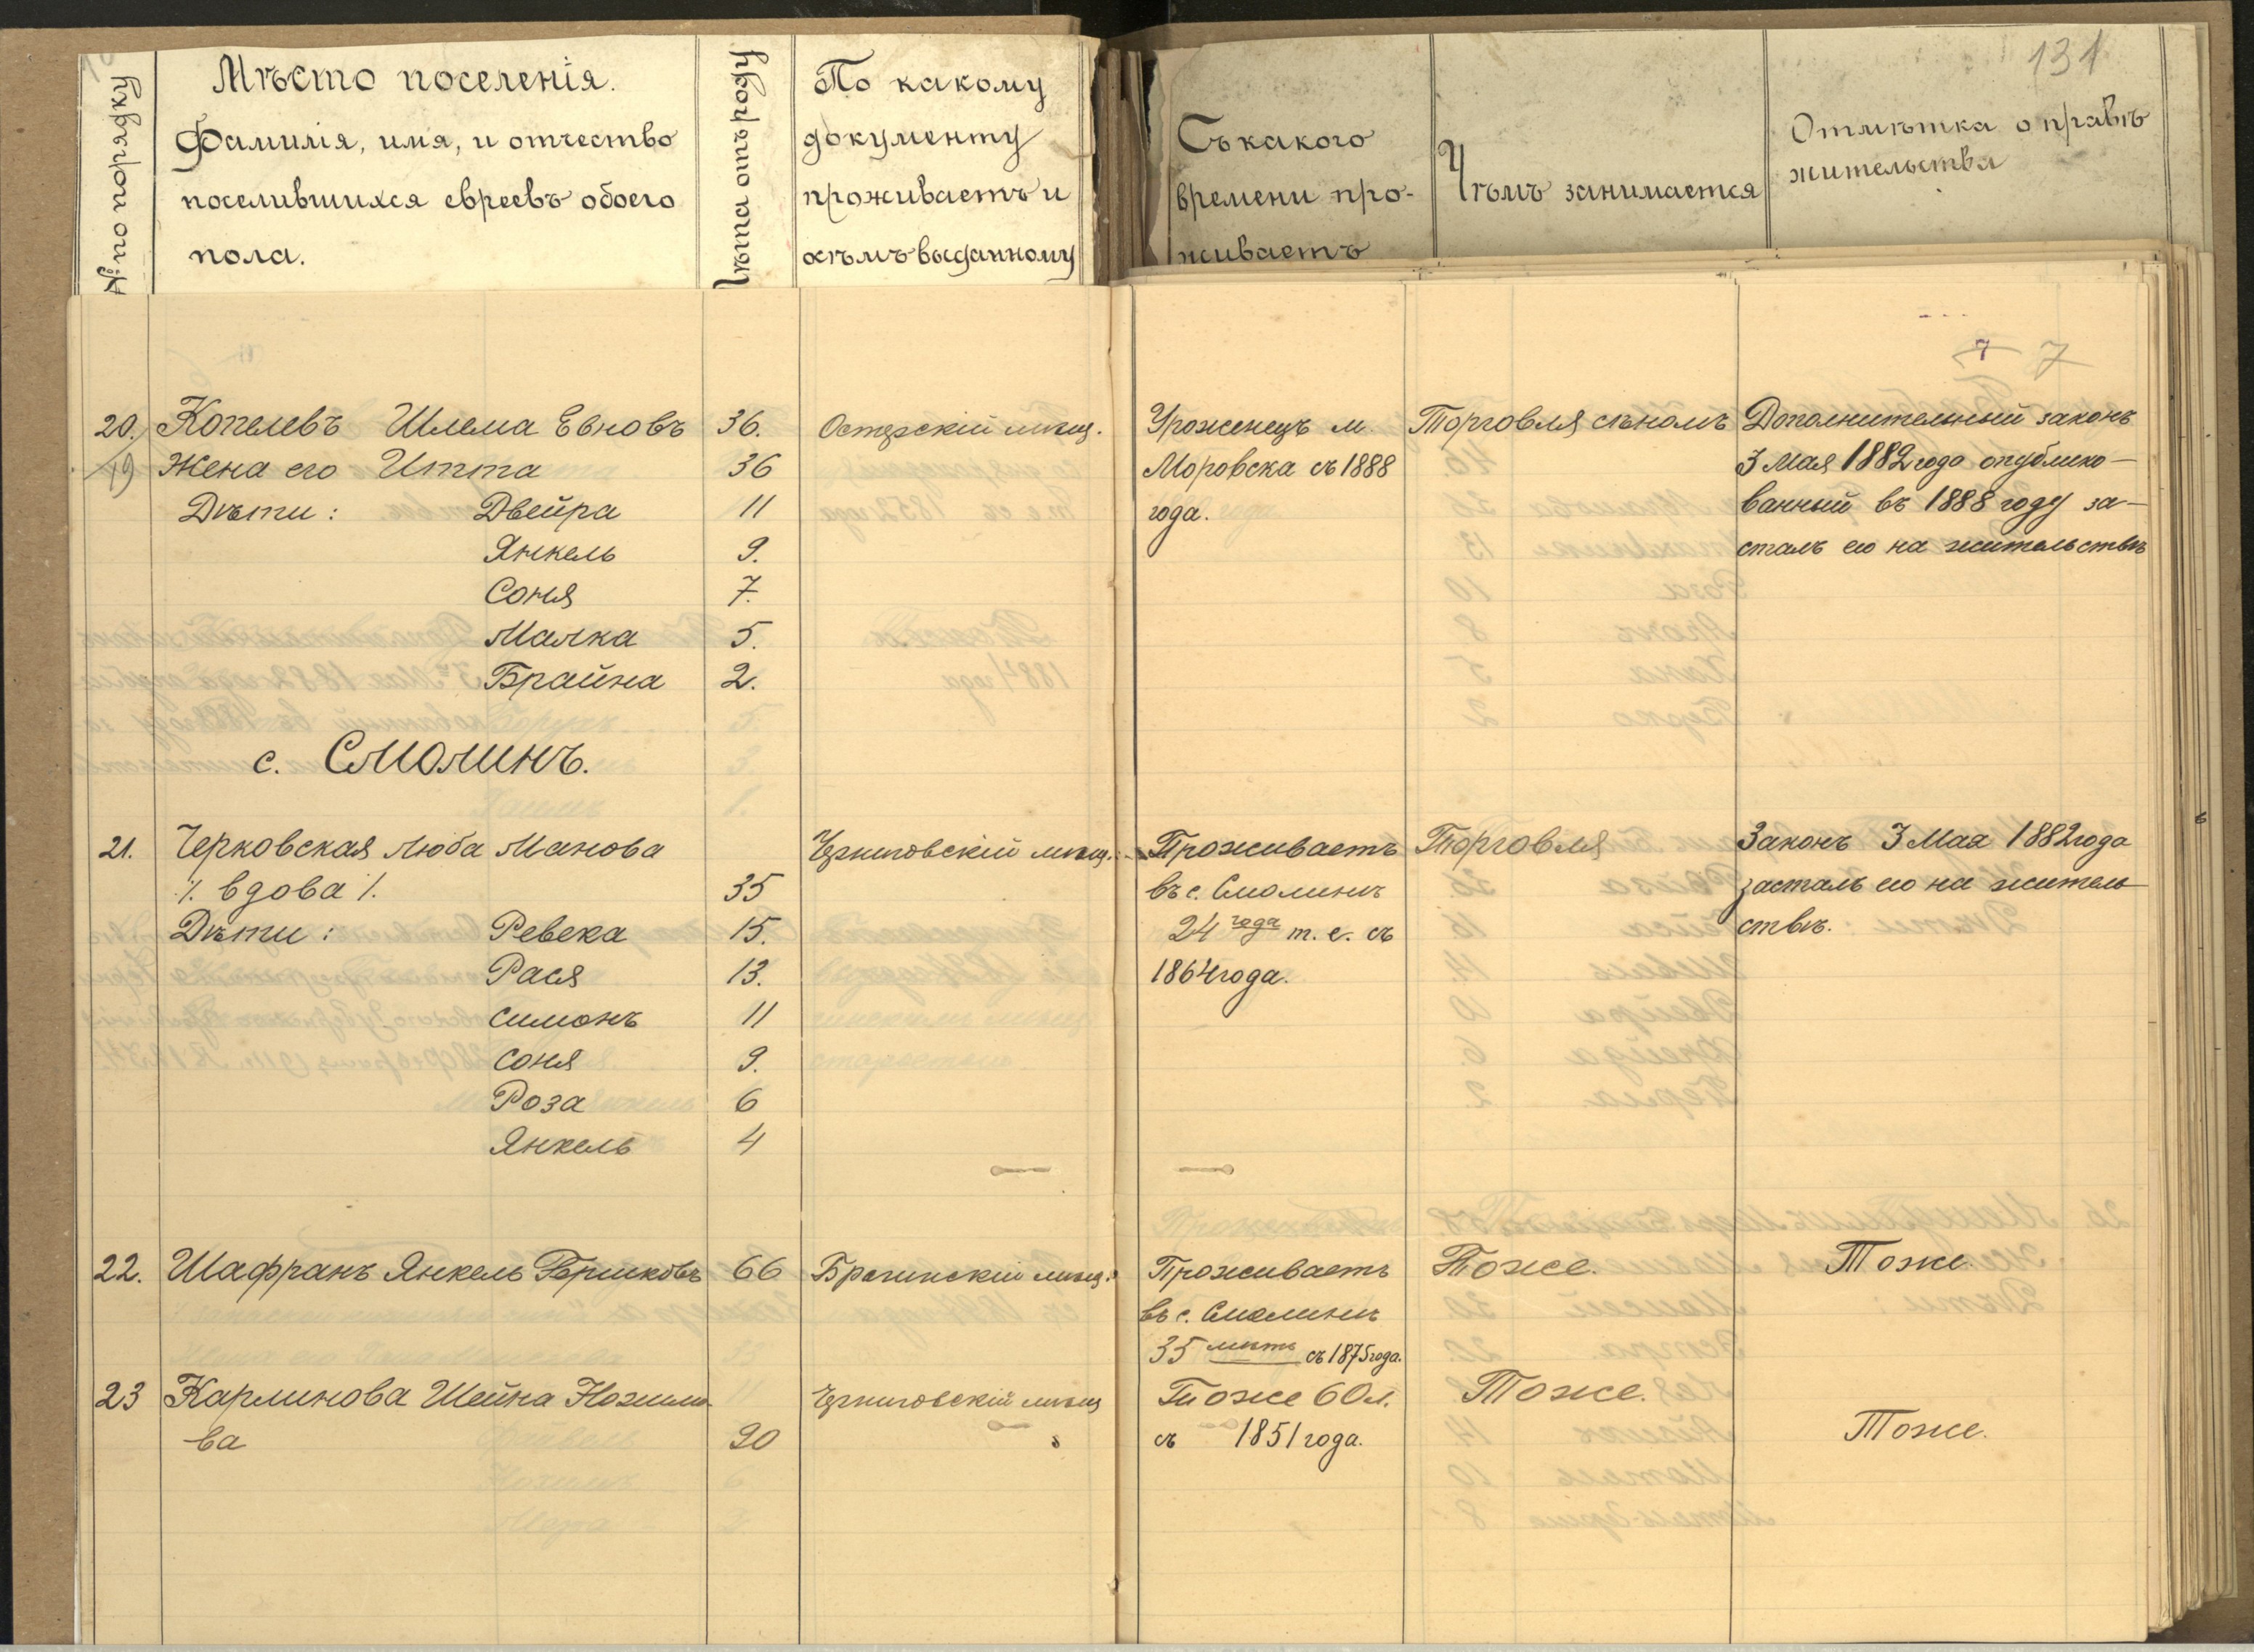 131
№ по порядку
Мѣсто поселенія.
Фамилія, имя, и отчество
поселившихся евреевъ обоего
пола.
Лѣта отъ роду
По какому
документу
проживаетъ и
кѣмъ выданному
Съ какого
времени про-
живаетъ
Чѣмъ занимается
Отмѣтка о правѣ
жительства
7 7
20. Копелевъ Шлема Евновъ 36. Остерскій мѣщ. Уроженецъ м. Торговля сѣномъ Дополнительный законъ
19 Жена его Итта 36 Моровска съ 1888 3 Мая 1882 года опублико-
Дѣти: Двейра 11 года. ванный въ 1888 году за-
Янкель 9. сталъ его на жительствѣ
Соня 7.
Малка 5.
Брайна 2.
с. Смолинъ.
21. Черковская Люба Манова Черниговскій мѣщ. Проживаетъ Торговля Законъ 3 Мая 1882 года
/. вдова /. 35 въ с. Смолинѣ засталъ ею на житель-
Дѣти: Ревека 15. 24 года т. е. съ ствѣ.
Рася 13. 1864 года.
Симонъ 11
Соня 9.
Роза 6
Янкель 4
22. Шафранъ Янкель Гершковъ 66 Брагинскій мѣщ. Проживаетъ Тоже. Тоже.
въ с. Смолинѣ
35 лѣтъ съ 1875 года.
23 Карлинова Шейна Нохимо- Черниговскій мѣщ Тоже 60 л. Тоже.
ва 90 съ 1851 года. Тоже.